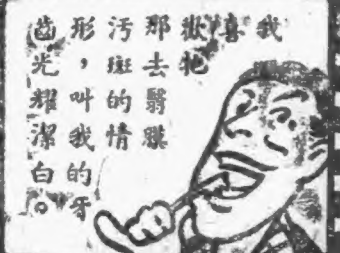 我
喜
歡牠
那去翳膜
污斑的情
形，叫我的牙
齒光耀潔白。